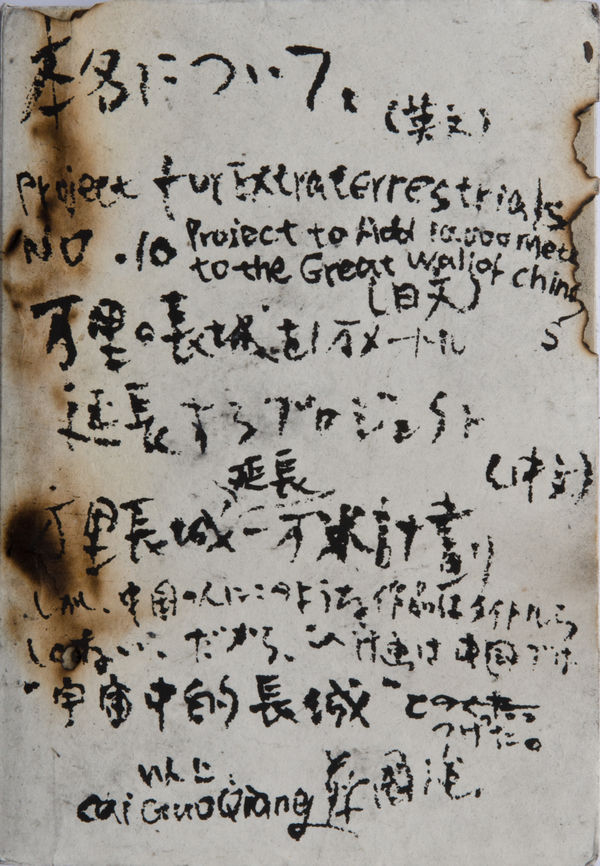 本名について。
(英文)
Project fur Extraterrestrials
NO .10 Project to Add 10.000 mete
to the Great Wall of China
(日文)
万里の長城を1万メートル
延長するプロジェクト
(中文)
延長
万里長城一万米計劃
しかし、中国の人にこのような作品はタイトルら
しくない、だから、この計画は中国では
"宇宙中的長城"と
つけた。
以上、
Cai Guo Qiang 蔡國強